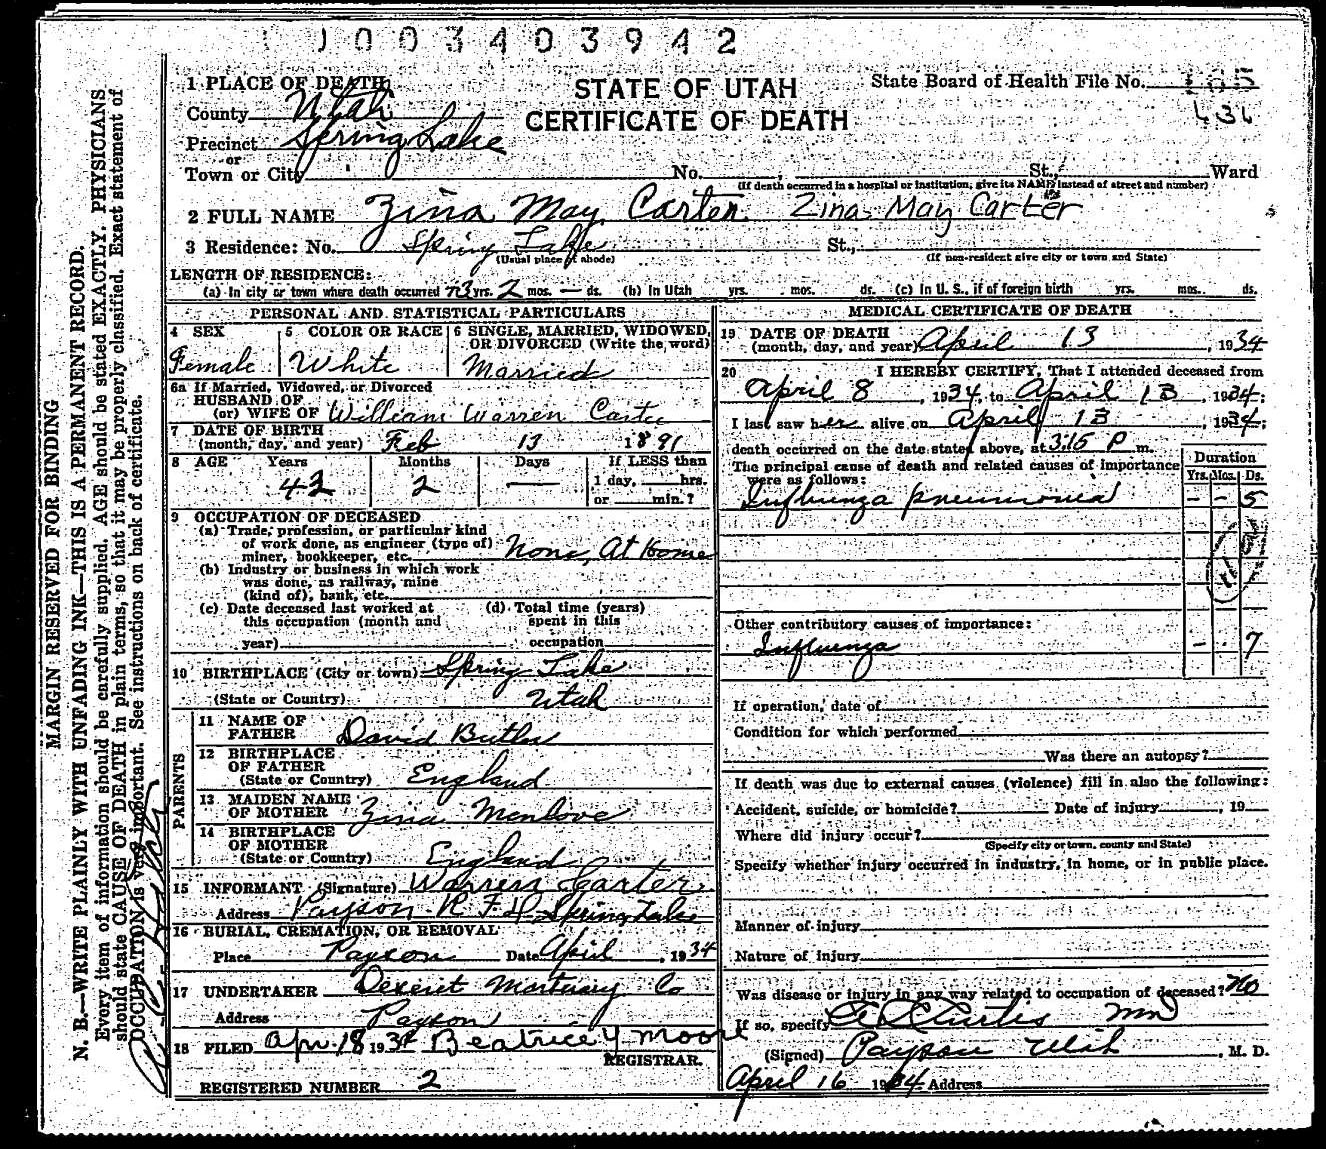 1003403942
STATE OF UTAH
CERTIFICATE OF DEATH
State Board of Health File No.
436
1 PLACE OF DEATH
County Utah
Precinct Spring Lake
or
Town or City No. , St., Ward
(If death occurred in a hospital or institution, give its NAME instead of street and number)
2 FULL NAME Zina May Carter. Zina May Carter
3 Residence: No. Spring Lake St.,
(Usual place of abode) (If non-resident give city or town and State)
LENGTH OF RESIDENCE:
(a) In city or town where death occurred 43 yrs. 2 mos. — ds. (b) In Utah yrs. mos. ds. (c) In U. S., if of foreign birth yrs. mos. ds.
PERSONAL AND STATISTICAL PARTICULARS
4 SEX 5 COLOR OR RACE 6 SINGLE, MARRIED, WIDOWED, OR DIVORCED (Write the word)
Female White Married
6a If Married, Widowed, or Divorced
HUSBAND OF
(or) WIFE OF William Warren Carter
7 DATE OF BIRTH
(month, day, and year) Feb 13 1891
8 AGE Years Months Days If LESS than
43 2 — 1 day, hrs.
or min.?
9 OCCUPATION OF DECEASED
(a) Trade, profession, or particular kind
of work done, as engineer (type of)
miner, bookkeeper, etc. None, At Home
(b) Industry or business in which work
was done, as railway, mine
(kind of), bank, etc.
(c) Date deceased last worked at
this occupation (month and
year)
(d) Total time (years)
spent in this
occupation
10 BIRTHPLACE (City or town) Spring Lake
(State or Country) Utah
PARENTS
11 NAME OF
FATHER David Butler
12 BIRTHPLACE
OF FATHER
(State or Country) England
13 MAIDEN NAME
OF MOTHER Zina Menlove
14 BIRTHPLACE
OF MOTHER
(State or Country) England
15 INFORMANT (Signature) Warren Carter
Address Payson R F D Spring Lake
16 BURIAL, CREMATION, OR REMOVAL
Place Payson Date April , 1934
17 UNDERTAKER Deseret Mortuary Co
Address Payson
18 FILED Apr. 18 1934 Beatrice Y Moore
REGISTRAR.
REGISTERED NUMBER 2
MEDICAL CERTIFICATE OF DEATH
19 DATE OF DEATH
(month, day, and year) April 13 , 1934
20 I HEREBY CERTIFY, That I attended deceased from
April 8 , 1934, to April 13 , 1934;
I last saw her alive on April 13 , 1934;
death occurred on the date stated above, at 3:15 P m.
The principal cause of death and related causes of importance
were as follows:
Duration
Yrs. Mos. Ds.
Influenza pneumonia - - 5
Other contributory causes of importance:
Influenza - - 7
If operation, date of
Condition for which performed
Was there an autopsy?
If death was due to external causes (violence) fill in also the following:
Accident, suicide, or homicide? Date of injury , 19
Where did injury occur?
(Specify city or town, county and State)
Specify whether injury occurred in industry, in home, or in public place.
Manner of injury
Nature of injury
Was disease or injury in any way related to occupation of deceased? No
If so, specify
(Signed) Payson Utah , M. D.
April 16 1934 Address
MARGIN RESERVED FOR BINDING
N. B.—WRITE PLAINLY WITH UNFADING INK—THIS IS A PERMANENT RECORD.
Every item of information should be carefully supplied. AGE should be stated EXACTLY. PHYSICIANS
should state CAUSE OF DEATH in plain terms, so that it may be properly classified. Exact statement of
OCCUPATION is very important. See instructions on back of certificate.